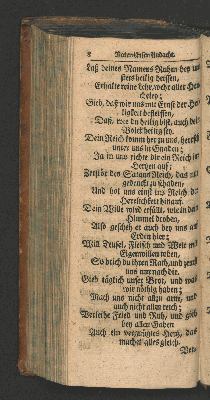 8 Materialischen Andacht.
Laß deines Namens Ruhm bey uns
stets heilig heissen,
Erhalte reine Lehr, wehr aller Heu-
cheley;
Gieb, daß wir uns mit Ernst der Hei-
ligkeit befleissen,
Daß, wie du heilig bist, auch dein
Volck heilig sey.
Dein Reich komm her zu uns, herrsch
unter uns in Gnaden;
Ja in uns richte dir ein Reich im
Hertzen auf;
Zerstör des Satans Reich, das uns
gedenckt zu schaden,
Und hol uns einst ins Reich der
Herrlichkeit hinauf.
Dein Wille werd erfüllt, wie in dem
Himmel droben,
Also gescheh er auch bey uns auf
Erden hier;
Will Teufel, Fleisch und Welt mit
Eigenwillen toben,
So brich du ihren Rath, und zeuch
uns nur nach dir.
Gieb täglich unser Brot, und was
wir nöthig haben;
Mach uns nicht allzu arm, und
auch nicht allzu reich;
Verleihe Fried und Ruh, und gieb
bey allen Gaben
Auch ein vergnügtes Hertz, das
machet alles gleich.